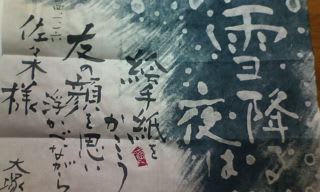 雪降る
夜は
絵手紙を
かこう
友の顔を思い
浮かべながら
佐々木様
大塚